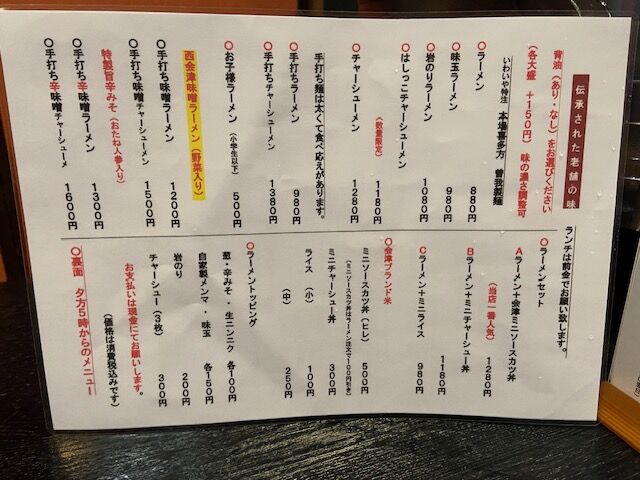 伝承された老舗の味
背油（あり・なし）をお選びください
（各大盛　＋１５０円）　味の濃さ調整可
いわいや特注　本場喜多方　曽我製麺
○ラーメン　880円
○味玉ラーメン　980円
○岩のりラーメン　1080円
○はしっこチャーシューメン　1180円
（数量限定）
○チャーシューメン　1280円
手打ち麺は太くて食べ応えがあります。
○手打ちラーメン　980円
○手打ちチャーシューメン　1380円
○お子様ラーメン（小学生以下）　500円
西会津味噌ラーメン（野菜入り）
○手打ち味噌ラーメン　1200円
○手打ち味噌チャーシューメン　1500円
特製旨辛みそ（おたね人参入り）
○手打ち辛味噌ラーメン　1300円
○手打ち辛味噌チャーシューメン　1600円
ランチは前金でお願い致します。
○ラーメンセット
Aラーメン＋会津ミニソースカツ丼　1280円
（当店一番人気）
Bラーメン＋ミニチャーシュー丼　1180円
Cラーメン＋ミニライス　980円
○会津ブランド米
ミニソースカツ丼（ヒレ）　500円
（ミニソースカツ丼はラーメン注文で100円引き）
ミニチャーシュー丼　300円
ライス（小）　100円
（中）　250円
○ラーメントッピング
葱・辛みそ・生ニンニク　各100円
自家製メンマ・味玉　各150円
岩のり　200円
チャーシュー（3枚）　300円
お支払いは現金にてお願いします。
（価格は消費税込みです）
○裏面　夕方5時からのメニュー